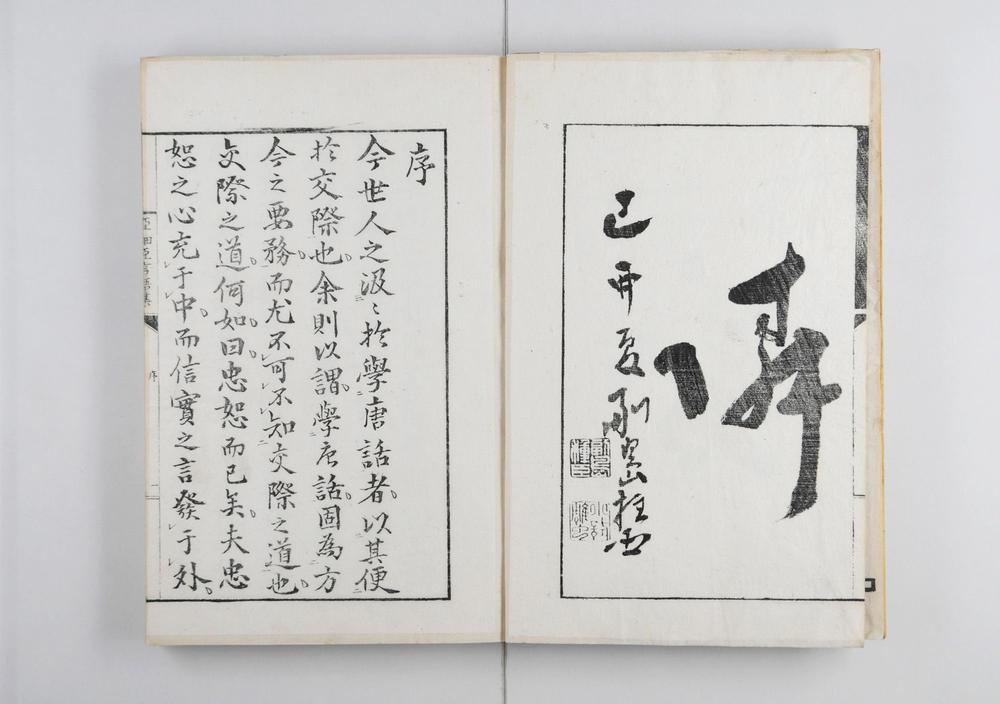 己卯夏副島種臣
序
今世人之汲〻於學唐話者。以其便
於交際也。余則以謂。學唐話。固為方
今之要務。而尤不可不知交際之道也。
交際之道。何如。曰。忠恕而已矣。夫忠
恕之心充于中。而信實之言發于外。
亞細亞言語集
序